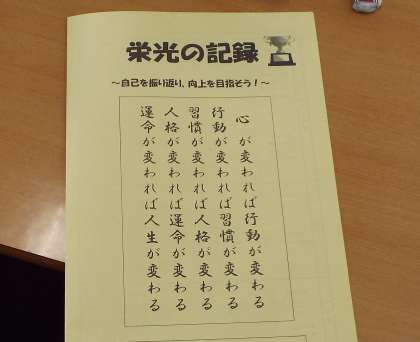 栄光の記録
～自己を振り返り、向上を目指そう！～
心が変われば行動が変わる
行動が変われば習慣が変わる
習慣が変われば人格が変わる
人格が変われば運命が変わる
運命が変われば人生が変わる